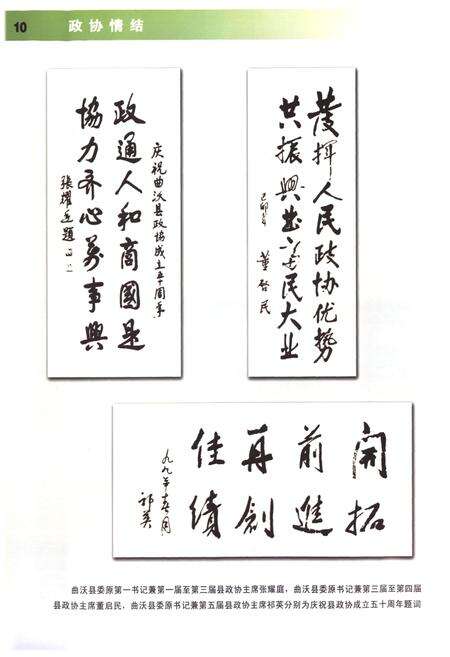 10 政协情结
庆祝曲沃县政协成立五十周年
政通人和商國是
協力齐心萬事興
張耀庭題
發揮人民政协优势
共振興民大业
己卯
董啓民
開拓
前進
再創
佳績
九九年
祁英
曲沃县委原第一书记兼第一届至第三届县政协主席张耀庭，曲沃县委原书记兼第三届至第四届
县政协主席董启民，曲沃县委原书记兼第五届县政协主席祁英分别为庆祝县政协成立五十周年题词